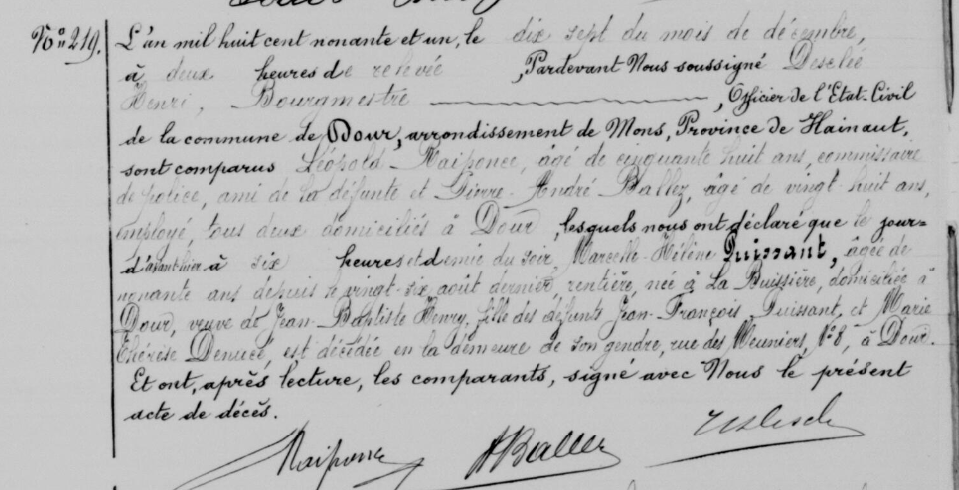 N° 219. L'an mil huit cent nonante et un, le dix sept du mois de décembre,
à deux heures de relevée, Pardevant Nous soussigné Desclée
Henri, Bourgmestre, Officier de l'Etat-Civil
de la commune de Dour, arrondissement de Mons, Province de Hainaut,
sont comparus Léopold Maiponce, âgé de cinquante huit ans, commissaire
de police, ami de la défunte et Pierre-André Ballez, âgé de vingt-huit ans,
employé, tous deux domiciliés à Dour, lesquels nous ont déclaré que le jour-
d'avant hier à six heures et demie du soir Marcelle-Hélène Puissant, âgée de
nonante ans depuis le vingt-six août dernier rentière, née à La Buissière, domiciliée à
Dour, veuve de Jean-Baptiste Henry, fille des défunts Jean-François Puissant, et Marie
Thérèse Denucé, est décédée en la demeure de son gendre, rue des Meuniers, N° 8, à Dour.
Et ont, après lecture, les comparants, signé avec Nous le présent
acte de décès.